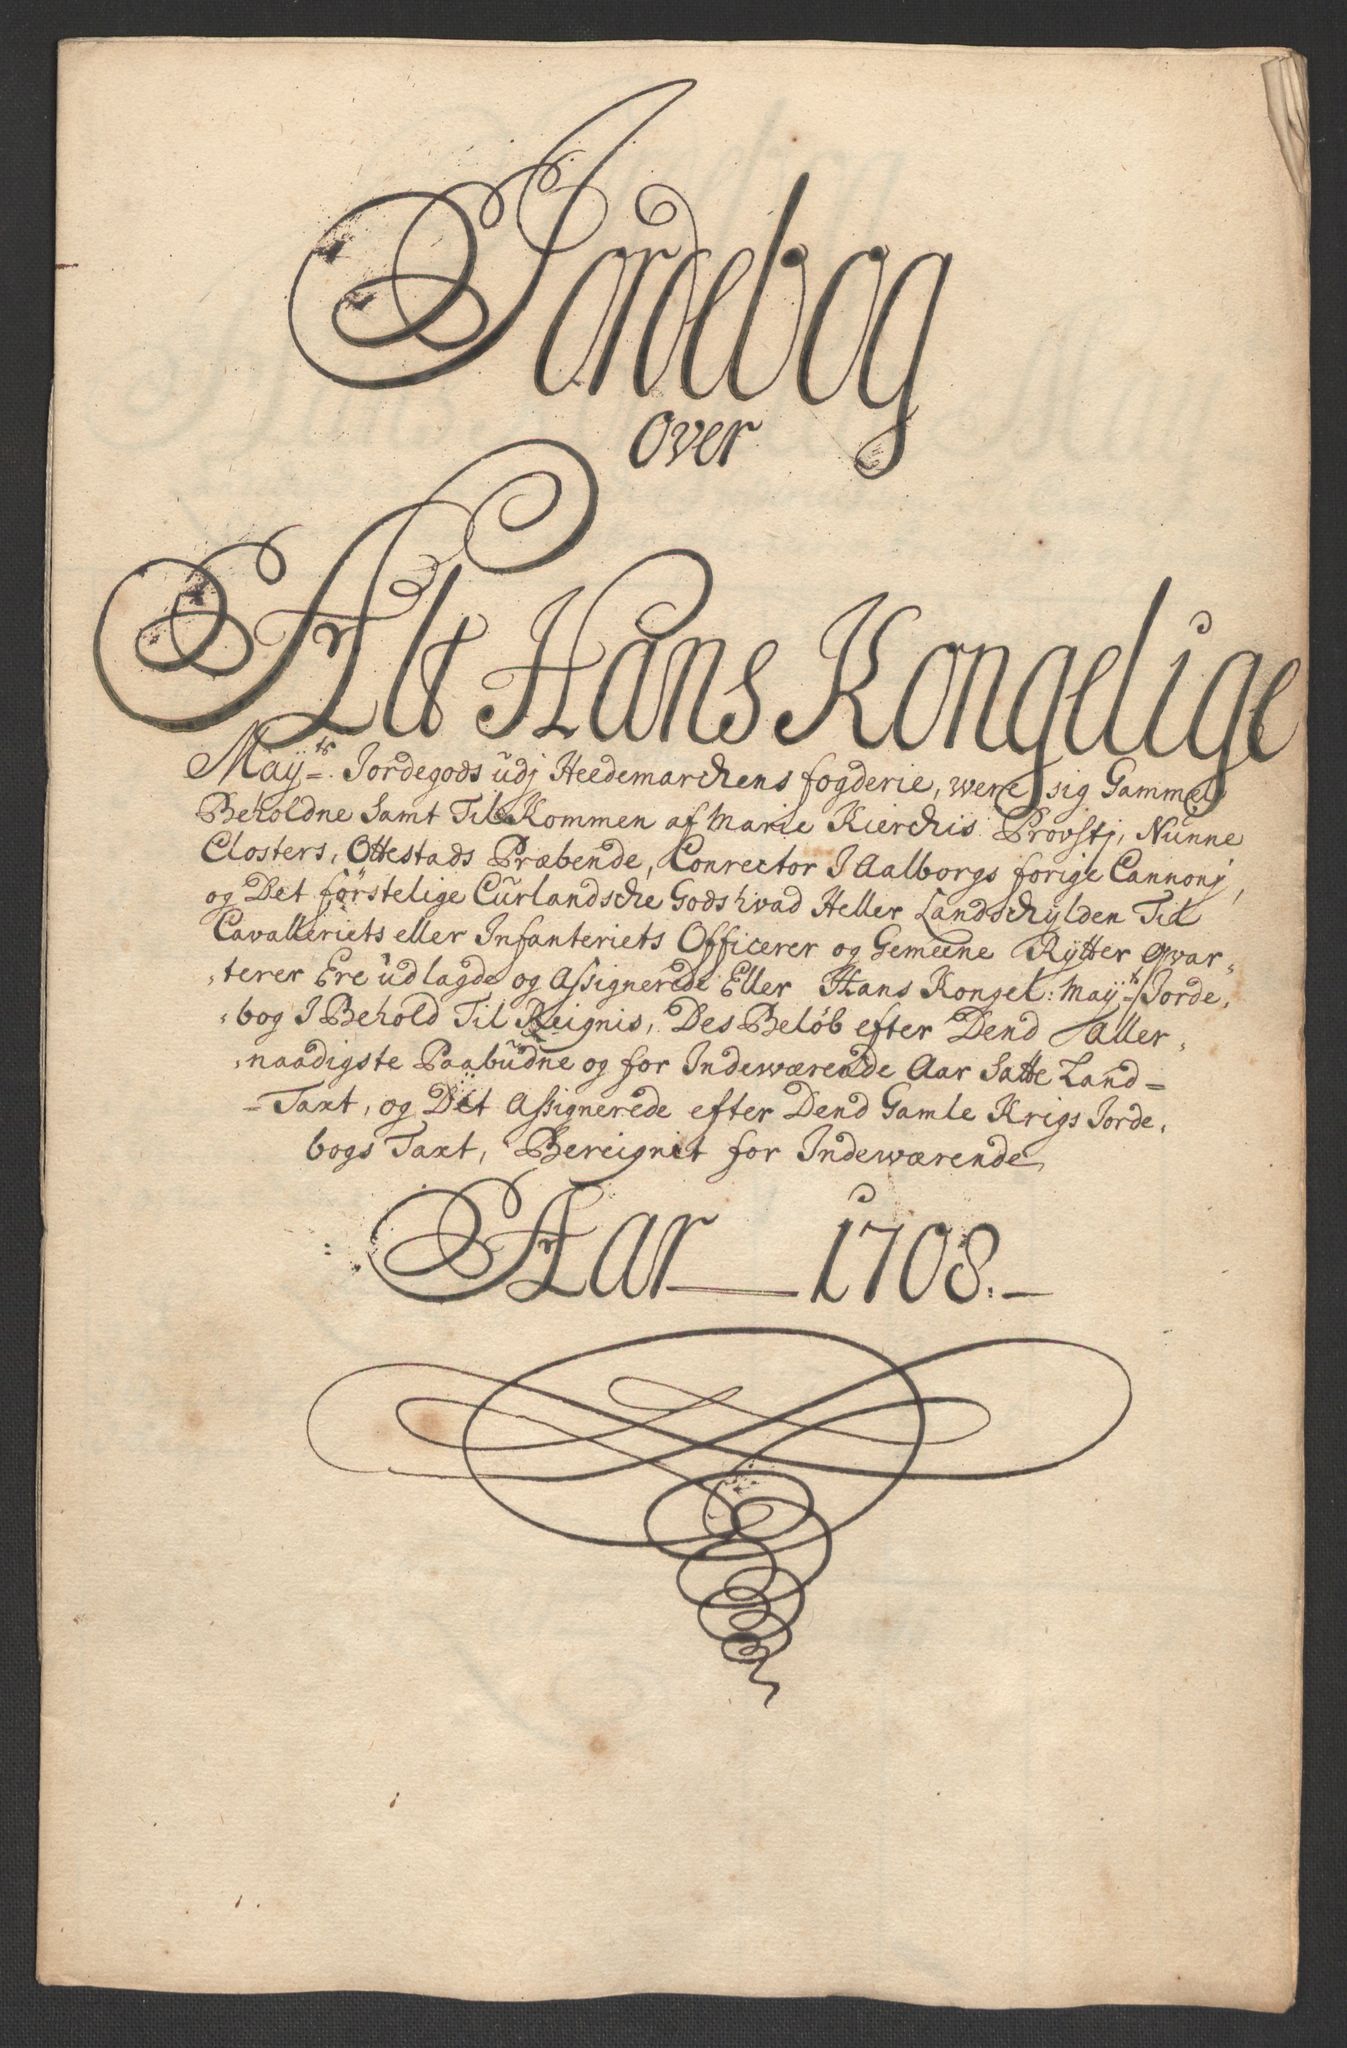 Jordebog
over
Alt Hans Kongelige
Mayts. Jordegods udj Heedemarchens fogderie, were sig Gammel
Beholdne Samt Til Kommen af Marie Kierchis Provstj, Nunne
Closters, Ottestads Præbende, Conrector I Aalborgs forige Cannonj,
og Det förstelige Curlandsche Gods hvad Heller Landschÿlden Til
Cavalleriets eller Infanteriets Officerer og Gemeene Rÿtter qvar-
-terer Ere udlagde og Assignerede Eller Hans Kongel: Mayts Jorde,
-bog I Behold Til Reignis, Des Beløb efter Dend aller-
-naadigste Paabudne og for Indewærende Aar Satte Land-
-Taxt, og Det Assignerede efter Dend Gamle Krigs Jorde,
bogs Taxt, Bereignit for Indewærende
Aar 1708.